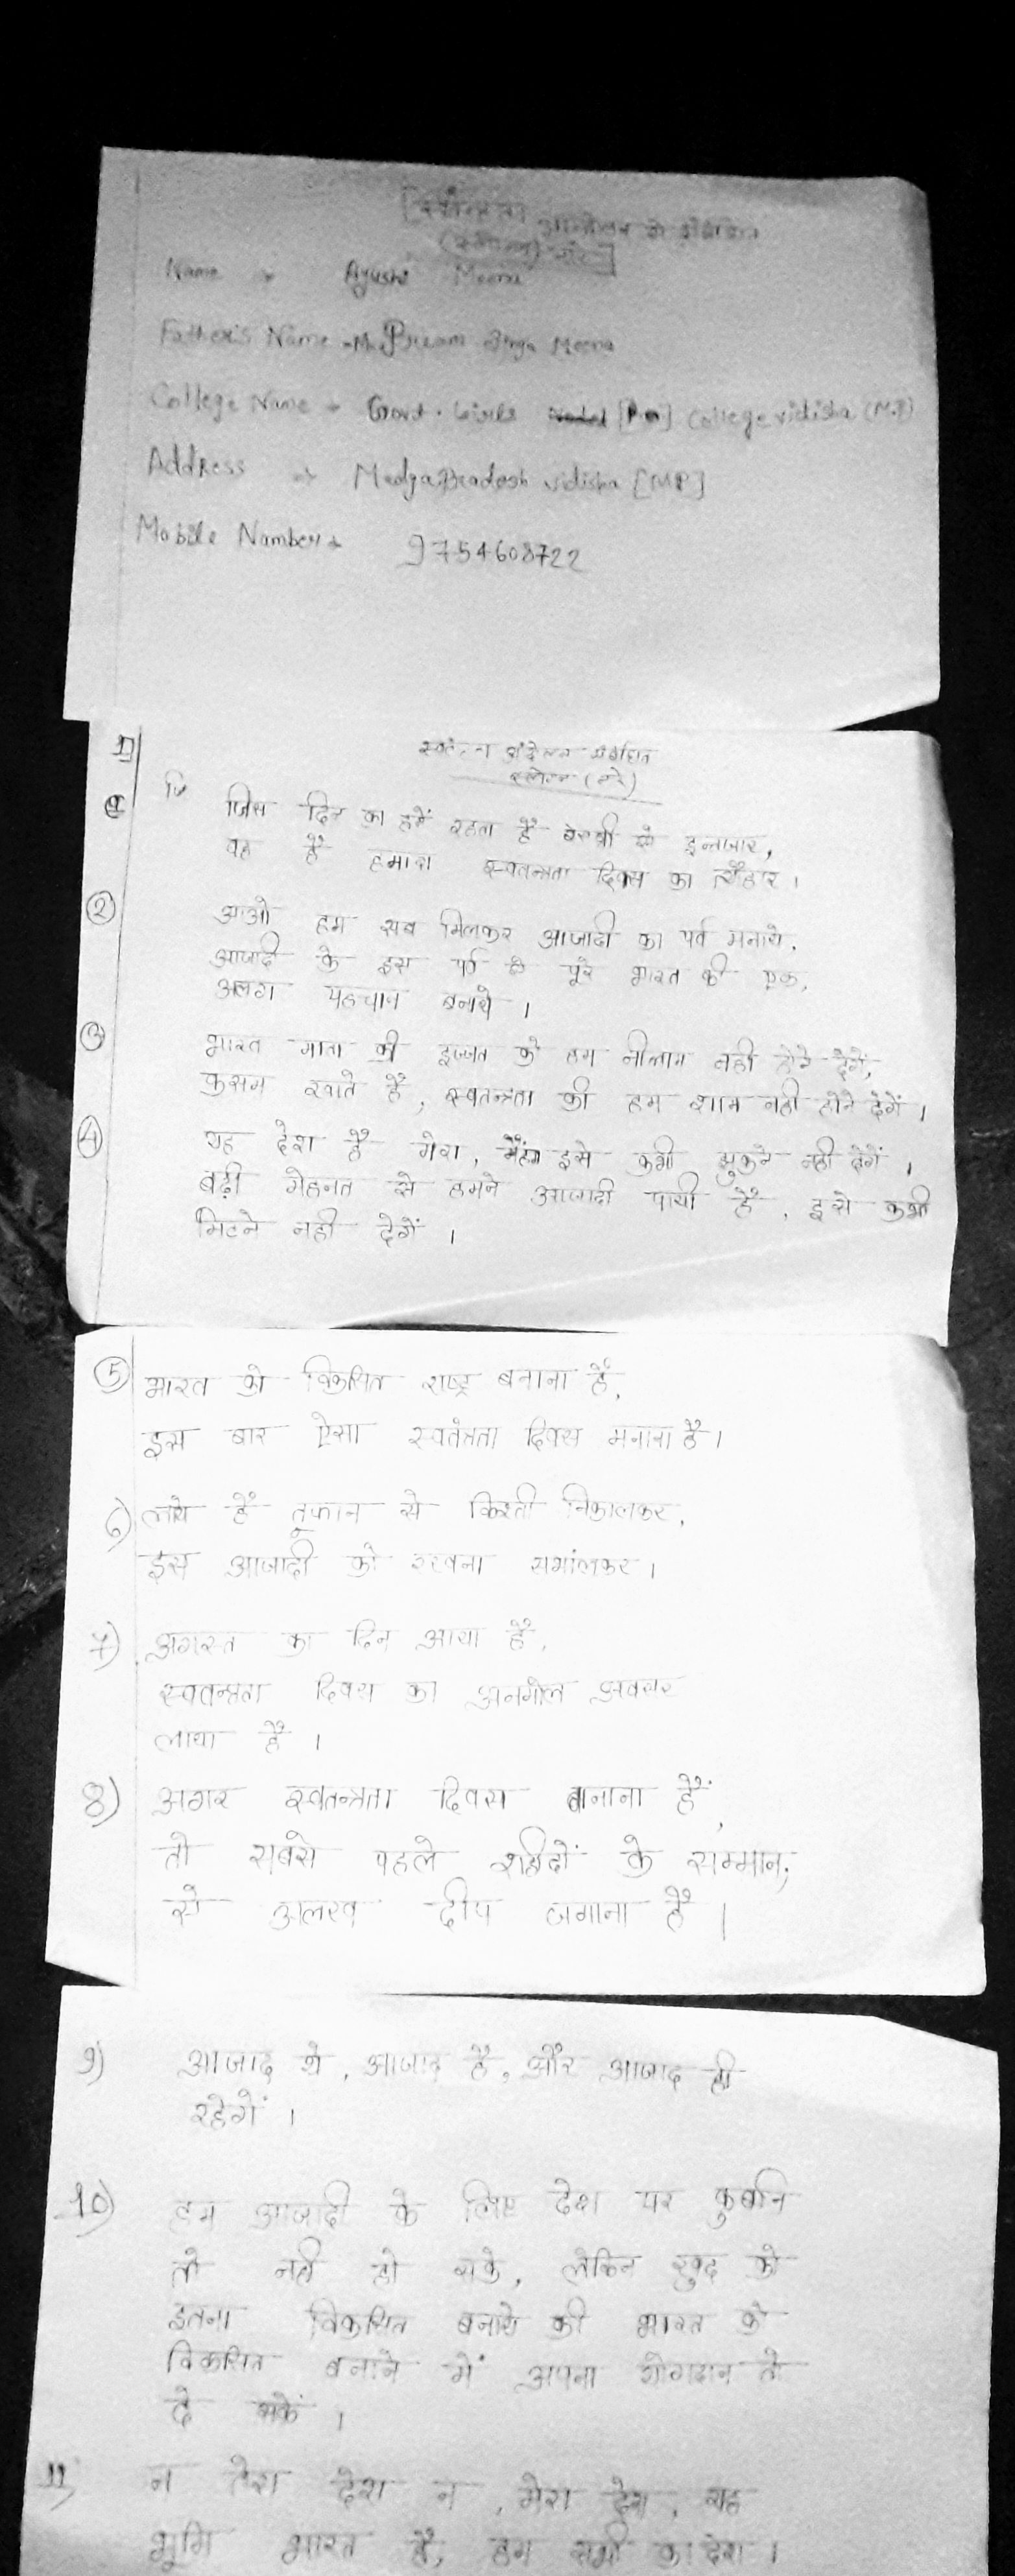 [स्वतंत्रता आन्दोलन से संबंधित
(स्लोगन) नारे]
Name → Ayushi Meena
Father's Name → Mr. Preeam Meena
College Name → Govt. Girls [P.G] College vidisha (M.P)
Address → Madyapradesh vidisha [M.P]
Mobile Number → 9754608722
स्वतंत्रता आंदोलन संबंधित
स्लोगन (नारे)
① जिस दिन का हमें रहता है बेसब्री से इन्तजार,
वह है हमारा स्वतन्त्रता दिवस का त्यौहार ।
② आओ हम सब मिलकर आजादी का पर्व मनाये,
आजादी के इस पर्व से पूरे भारत की एक,
अलग पहचान बनाये ।
③ भारत माता की इज्जत को हम नीलाम नही होने देगें,
कसम खाते है, स्वतन्त्रता की हम शाम नही होने देगें ।
④ यह देश है मेरा, इसे कभी झुकने नही देगें ।
बड़ी मेहनत से हमने आजादी पायी है, इसे कभी
मिटने नही देगें ।
⑤ भारत को विकसित राष्ट्र बनाना है,
इस बार ऐसा स्वतंत्रता दिवस मनाना है ।
6) लाये है तूफान से किश्ती निकालकर,
इस आजादी को रखना सभांलकर ।
7) अगस्त का दिन आया है,
स्वतन्त्रता दिवस का अनमोल अवसर
लाया है ।
8) अगर स्वतन्त्रता दिवस बनाना है,
तो सबसे पहले शहीदों के सम्मान,
से अलख दीप जगाना है ।
9) आजाद थे, आजाद है, और आजाद ही
रहेगें ।
10) हम आजादी के लिए देश पर कुर्बान
तो नही हो सके, लेकिन खुद को
इतना विकसित बनाये की भारत को
विकसित बनाने में अपना योगदान तो
दे सकें ।
11) न तेरा देश न, मेरा देश, यह
भूमि भारत है, हम सभी का देश ।